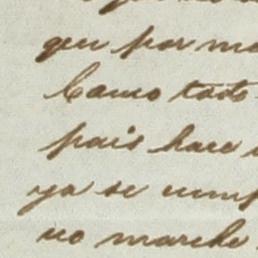 que por mo
Como todo
pais hace
ya se cump
no marche